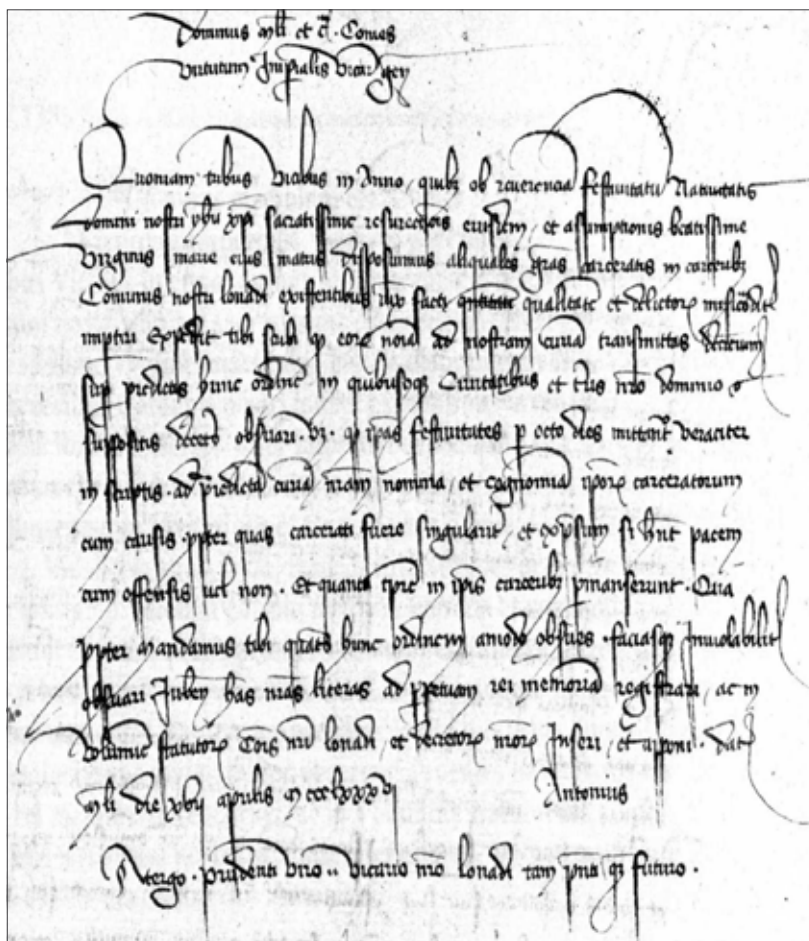 Dominus mli et c. Comes
Virtutum Imperialis vicar gey
Quoniam tribus vicibus in Anno, quibz ob reverencia festivitatu Nativitatis
Domini nostri yhu xpi sacratissime resurectois eiusdem, et asumptionis beatissime
Virginis marie eius matris disposuimus aliquales gras carceratis in carceribz
Comunis nostri lonadi existentibus iux facti qualitate et delictor misicordit
imptiri Expedit tibi scribi q core noia ad nostram curia transmittas decretum
sup predictis hunc ordine in quibuscqz Civitatibus et tris nro dominio
suppositis decreto obsuari. vz. q ipas festivitates p octo dies mittant veraciter
in scriptis. ad predicta curia nram nomina, et cognomia ipor carceratorum
cum causis ppter quas carcerati fuere singularit, et si hnt pacem
cum offensis vel non. Et quanto tpre in ipis carceribz pmanserunt. Qua
ppter Mandamus tibi qrats hunc ordinem amodo obsues. faciasqz inviolabilit
obsuari Iuben has nras literas ad ppetuam rei memoria registrari, ac in
volumie statutor Cois nri lonadi, et decretor nror Inseri, et apponi. Dat
mli die xviij aprilis M ccc lxxxv Antonius
A tergo. Prudenti viro .. vicario nro lonadi tam pnti q futuro.